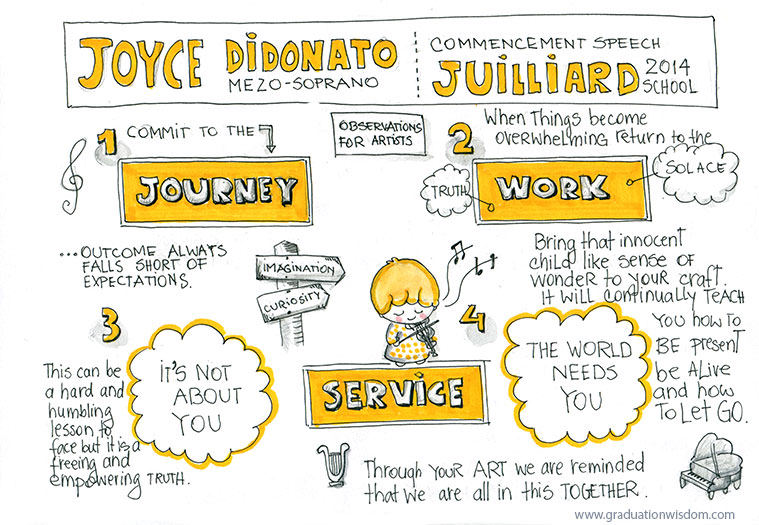 JOYCE DIDONATO
MEZO-SOPRANO
COMMENCEMENT SPEECH
JUILLIARD 2014
SCHOOL
OBSERVATIONS
FOR ARTISTS
1 COMMIT TO THE
JOURNEY
...OUTCOME ALWAYS
FALLS SHORT OF
EXPECTATIONS.
IMAGINATION
CURIOSITY
2 When Things become
overwhelming return to the
WORK
TRUTH
SOLACE
Bring that innocent
child like sense of
wonder to your craft.
It will continually TEACH
YOU how TO
BE present
be Alive
and how
To Let GO.
3
IT'S NOT
ABOUT
YOU
This can be
a hard and
humbling
lesson to
face but it is a
freeing and
empowering TRUTH.
SERVICE
4
THE WORLD
NEEDS
YOU
Through YOUR ART we are reminded
that we are all in this TOGETHER.
www.graduationwisdom.com